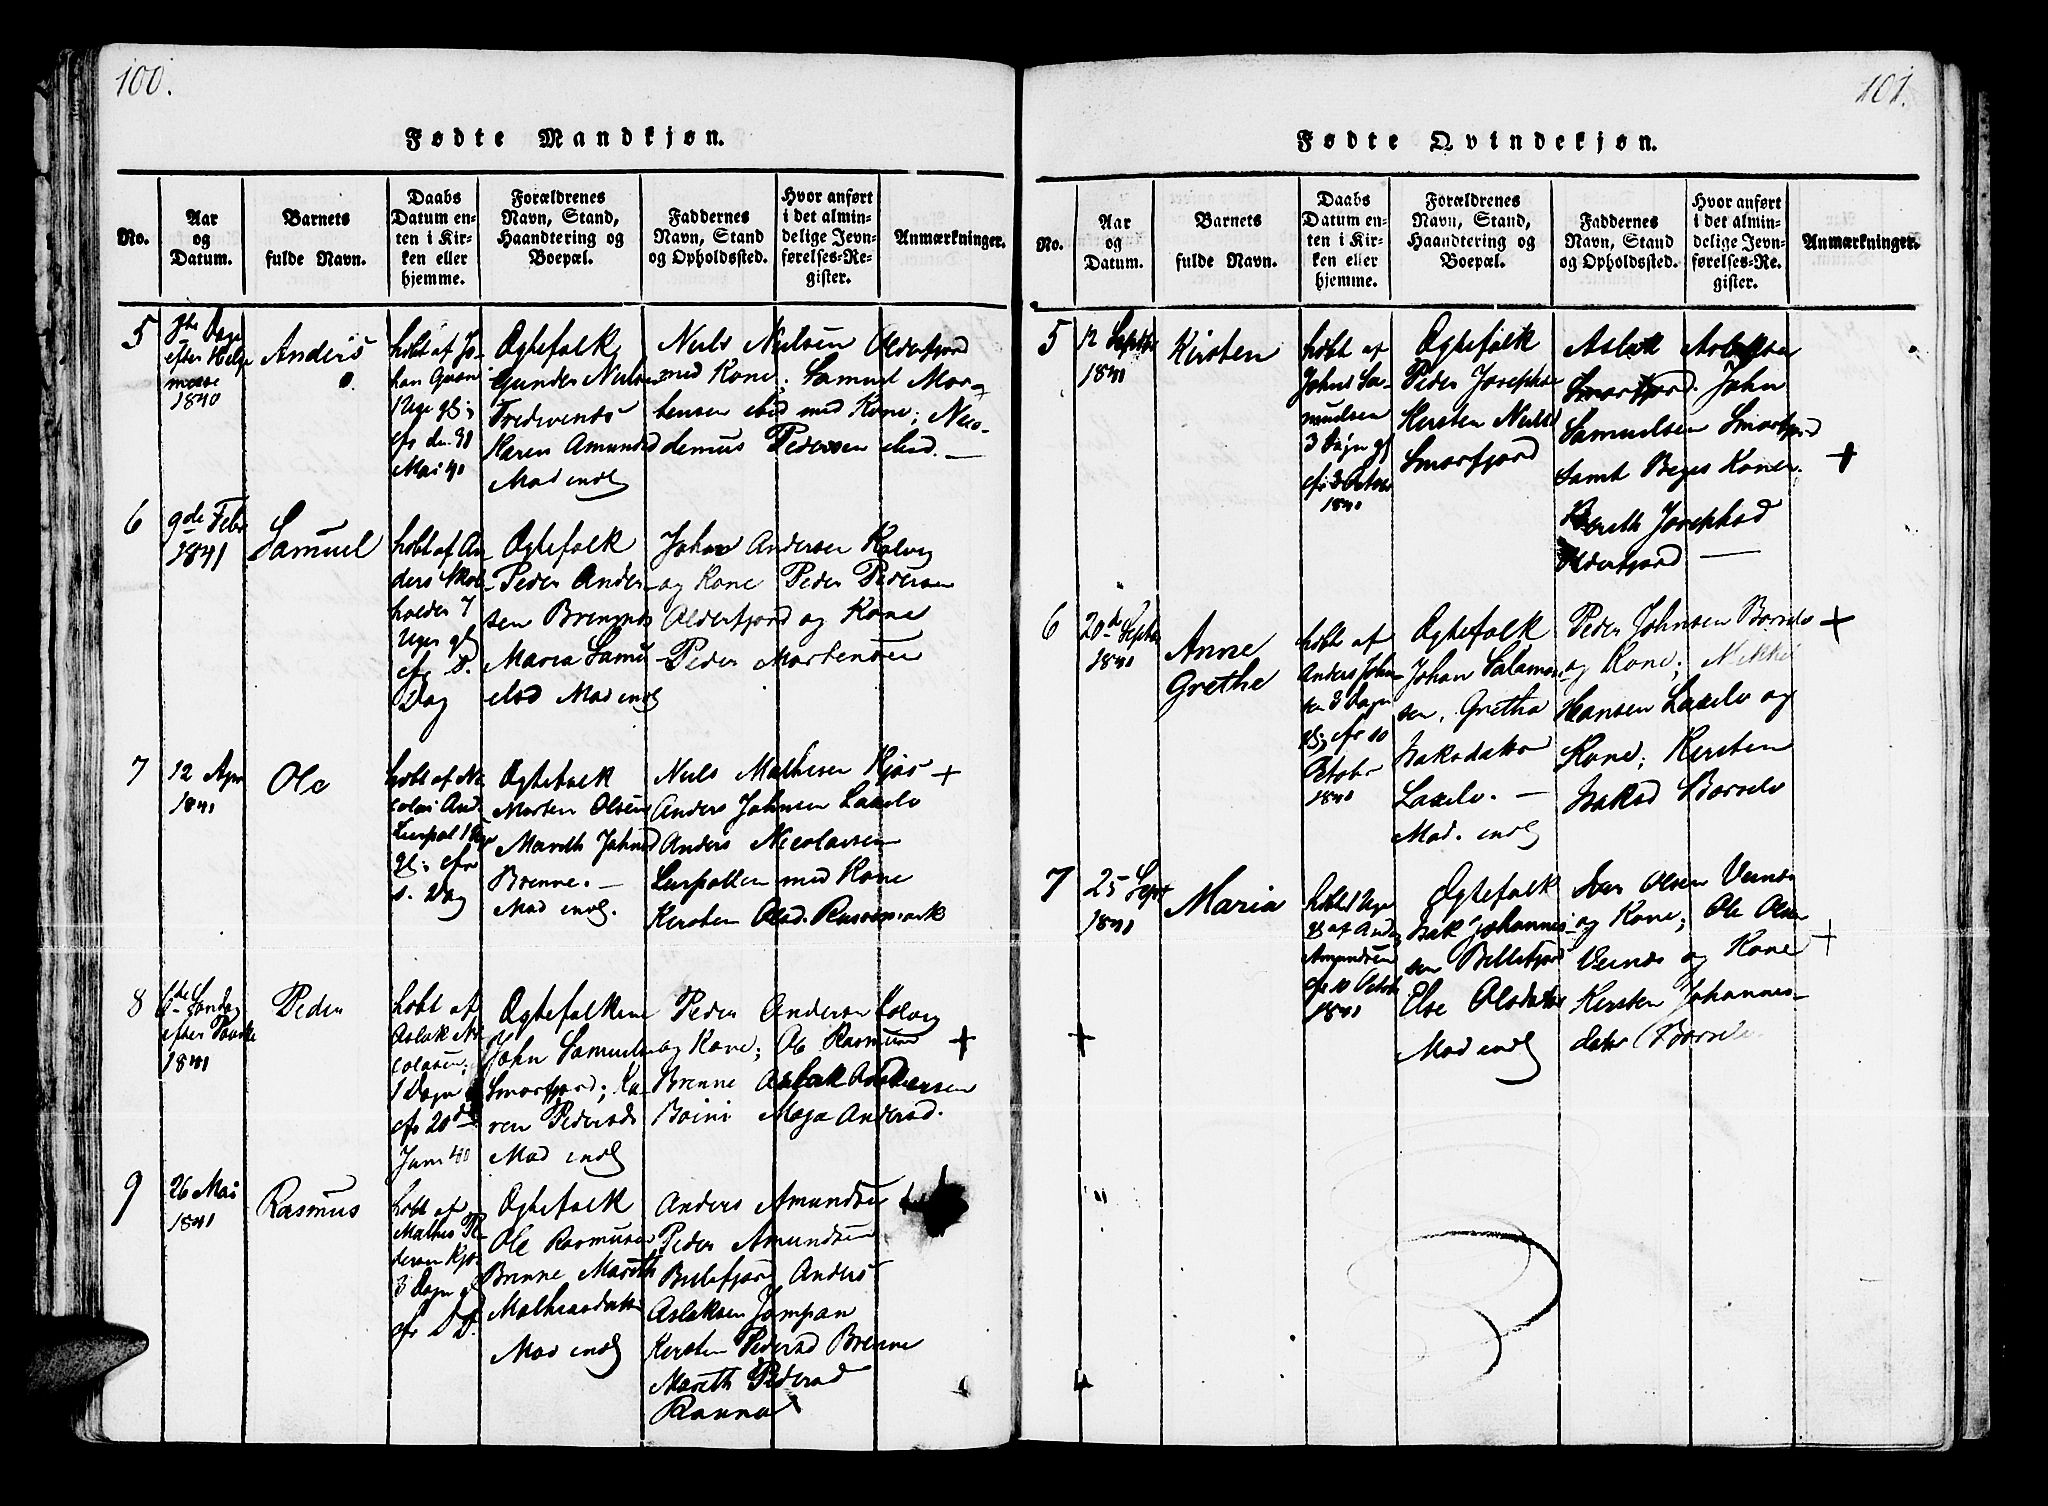 100.
Fødte Mandkjøn.
No.
Aar
og
Datum.
Barnets
fulde Navn.
Daabs
Datum en-
ten i Kir-
ken eller
hjemme.
Forældrenes
Navn, Stand,
Haandtering og
Boepæl.
Faddernes
Navn, Stand
og Opholdssted.
Hvor anført
i det almin-
delige Jevn-
førelses-Re-
gister.
Anmærkninger.
5
efter Helge
messe
1840
Anders
døbt af Jo-
han Qvæn
1 Uge gl;
Mai 40
Ægtefolk
Gunder Nielsen
Karen Amundsd
Mod indl
Niels Nielsen Olderfjord
med Kone; Samuel Mor-
tensen ibid med Kone; Nico-
demus Pedersen ibid. —
6
9de Febr
1841
Samuel
døbt af An-
ders Skol-
holder 7
Uger gl
s. D.
Dag
Ægtefolk
Peder Ander-
sen Brennes
Maria Samu-
elsd Mod indl
Johan Andersen Kolvig
og Kone Peder Pedersen
Olderfjord og Kone
Peder Mortensen
7
12 Apr
1841
Ole
døbt af Ni-
colai And.
gl;
s. Dag
Ægtefolk
Morten Olsen
Mareth Johnsd
Brenne. —
Mod indl.
Niels Mathisen Kjæs +
Anders Johnsen Laxelv
Anders Nicolaisen
Leirpollen med Kone
Kersten Olsd. Russemark
8
6te Søndag
efter Paaske
1841
Peder
døbt af
Aslak Ni-
colaisen;
1 Døgn
20de
Juni 40
Ægtefolkene
John Samuelsen
Smørfjord; Ka-
ren Pedersdr
Mod indl
Peder Andersen Kolvig
og Kone; Ole Rasmusen +
Brenne Aslak Andersen
Boini Maja Andersd.
9
26 Mai
1841
Rasmus
døbt af
Mathis Pe-
dersen Kjæs
3 Døgn gl
Ægtefolk
Ole Rasmusen
Brenne Mareth
Mathisdatter
Mod indl
Anders Amundsen +
Peder Amundsen
Billefjord Anders
Aslaksen Jompan
Kersten Pedersd Brenne
Mareth Pedersd
101.
Fødte Qvindekjøn.
No.
Aar
og
Datum.
Barnets
fulde Navn.
Daabs
Datum en-
ten i Kir-
ken eller
hjemme.
Forældrenes
Navn, Stand,
Haandtering og
Boepæl.
Faddernes
Navn, Stand
og Opholdssted.
Hvor anført
i det almin-
delige Jevn-
førelses-Re-
gister.
Anmærkninger.
5
12 Septbr
1841
Kirsten
døbt af
Johns Sa-
muelsen
3 Døgn gl
3 Octobr
1841
Ægtefolk
Peder Josephsen
Kersten Nielsd
Smørfjord
Aslak Aslaksen
Smørfjord. John
Samuelsen Smørfjord
samt Beges Koner. +
Bereth Josephsd
Olderfjord —
6
20de Septbr
1841
Anne
Grethe
døbt af
Anders John-
sen 3 Døgn
gl; 10
Octobr
1841
Ægtefolk
Johan Salamon-
sen, Gretha
Isaksdatter
Laxelv. —
Mod. indl
Peder Johnsen Børselv +
og Kone; Nikkel
Hansen Laxelv og
Kone; Kersten
Isaksd Børselv
7
25 Sept
1841
Maria
døbt 1 Uge
gl af Anders
Amundsen
10 Octobr
1841
Ægtefolk
Isak Johannes-
sen Billefjord
Else Olsdatter
Mod indl
Iver Olsen Veinæs
og Kone; Ole Olsen
Veinæs og Kone +
Kersten Johannes-
datr Børselv